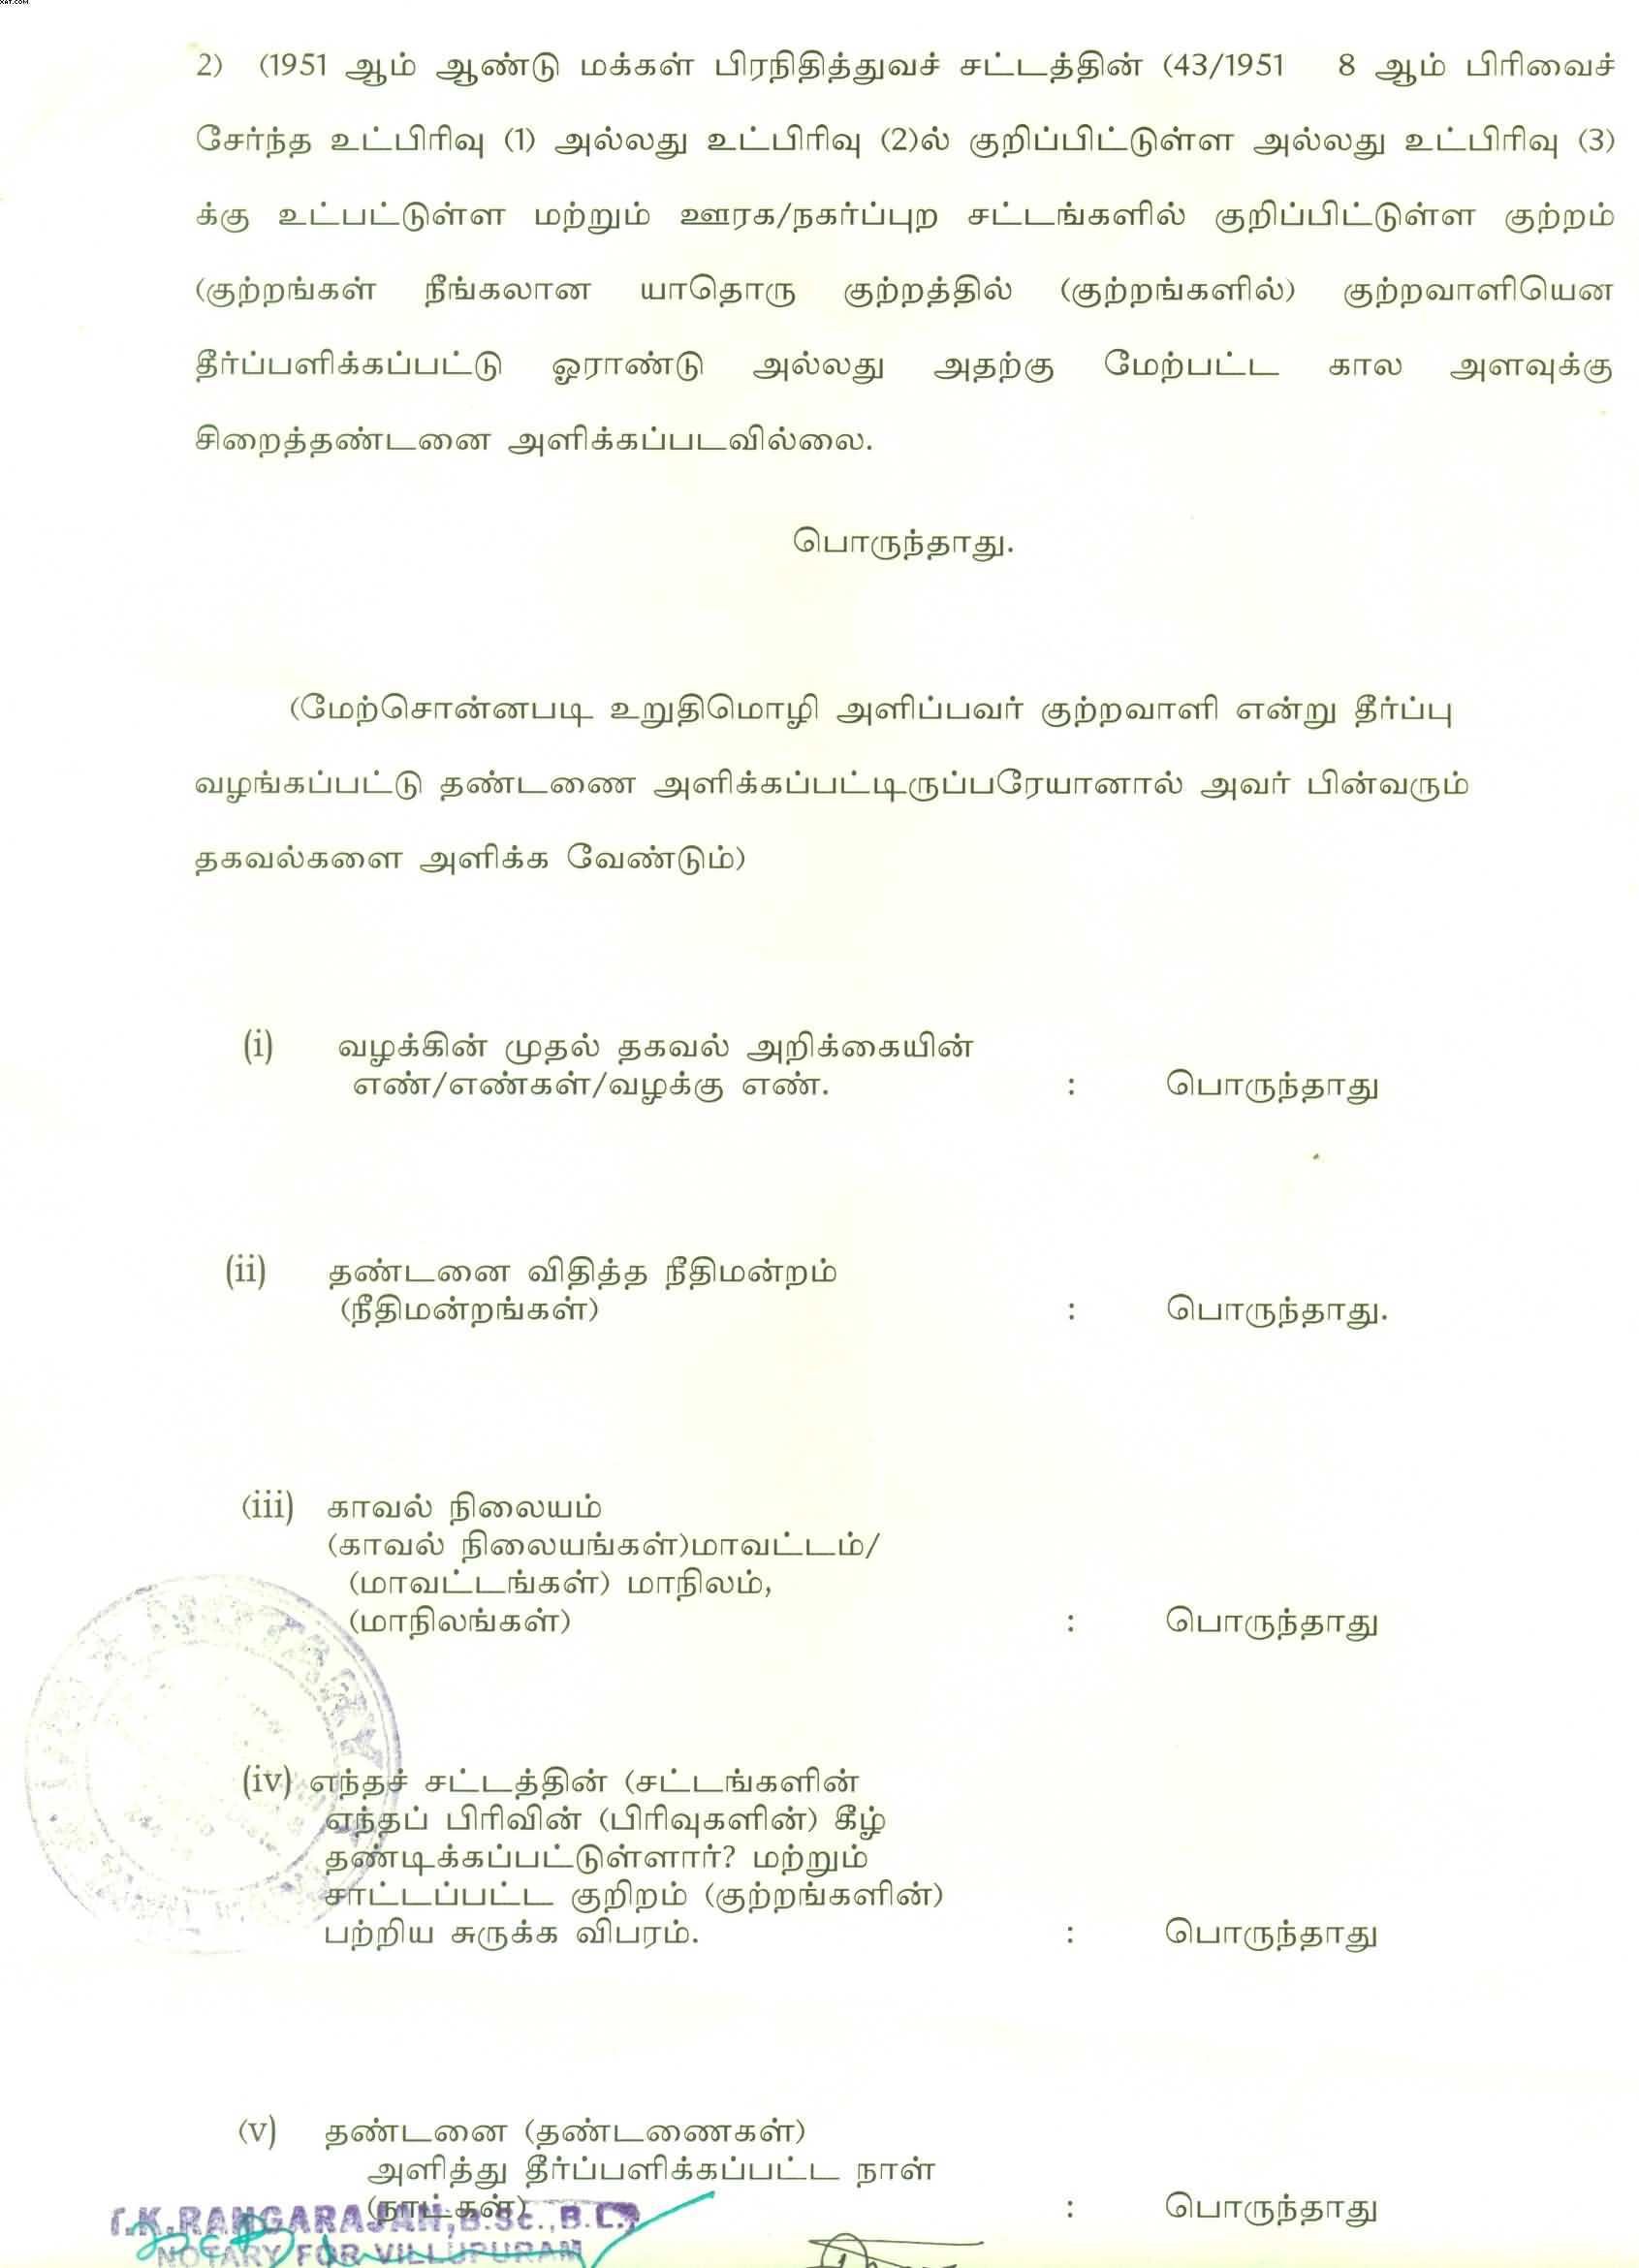 XAT.COM
2) (1951 ஆம் ஆண்டு மக்கள் பிரநிதித்துவச் சட்டத்தின் (43/1951 8 ஆம் பிரிவைச்
சேர்ந்த உட்பிரிவு (1) அல்லது உட்பிரிவு (2)ல் குறிப்பிட்டுள்ள அல்லது உட்பிரிவு (3)
க்கு உட்பட்டுள்ள மற்றும் ஊரக/நகர்ப்புற சட்டங்களில் குறிப்பிட்டுள்ள குற்றம்
(குற்றங்கள் நீங்கலான யாதொரு குற்றத்தில் (குற்றங்களில்) குற்றவாளியென
தீர்ப்பளிக்கப்பட்டு ஓராண்டு அல்லது அதற்கு மேற்பட்ட கால அளவுக்கு
சிறைத்தண்டனை அளிக்கப்படவில்லை.
பொருந்தாது.
(மேற்சொன்னபடி உறுதிமொழி அளிப்பவர் குற்றவாளி என்று தீர்ப்பு
வழங்கப்பட்டு தண்டணை அளிக்கப்பட்டிருப்பரேயானால் அவர் பின்வரும்
தகவல்களை அளிக்க வேண்டும்)
(i) வழக்கின் முதல் தகவல் அறிக்கையின்
எண்/எண்கள்/வழக்கு எண். : பொருந்தாது
(ii) தண்டனை விதித்த நீதிமன்றம்
(நீதிமன்றங்கள்) : பொருந்தாது.
(iii) காவல் நிலையம்
(காவல் நிலையங்கள்)மாவட்டம்/
(மாவட்டங்கள்) மாநிலம்,
(மாநிலங்கள்) : பொருந்தாது
NOTARY
(iv) எந்தச் சட்டத்தின் (சட்டங்களின்
எந்தப் பிரிவின் (பிரிவுகளின்) கீழ்
தண்டிக்கப்பட்டுள்ளார்? மற்றும்
சாட்டப்பட்ட குறிறம் (குற்றங்களின்)
பற்றிய சுருக்க விபரம். : பொருந்தாது
(v) தண்டனை (தண்டணைகள்)
அளித்து தீர்ப்பளிக்கப்பட்ட நாள்
(நாட்கள்) : பொருந்தாது
T.K.RANGARAJAN,B.Sc.,B.L.,
NOTARY FOR VILLUPURAM